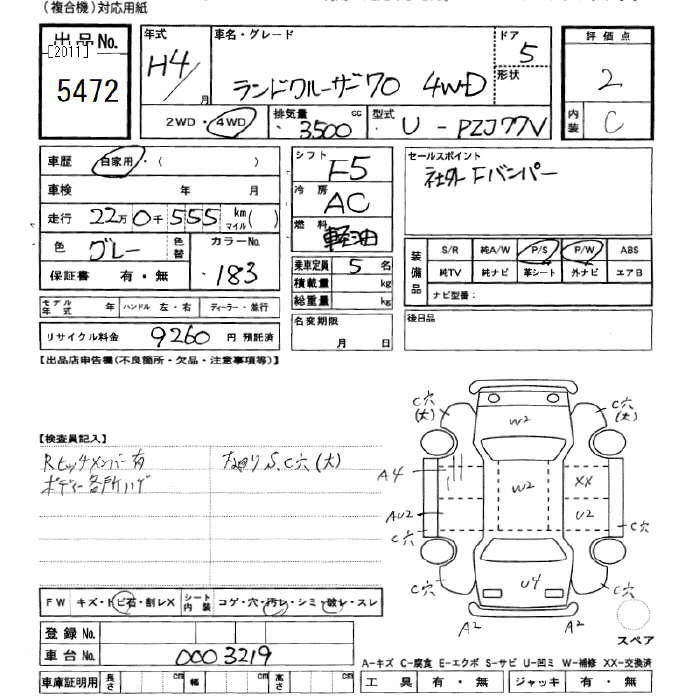 (複合機)対応用紙
出品No. [2011] 5472
年式 H4/月
車名・グレード ランドクルーザー70 4WD
ドア 5
形状
評価点 2
内装 C
2WD・4WD
排気量 3500 cc
型式 U-PZJ77V
車歴 自家用・( )
車検 年 月
走行 22万0千555 km マイル( )
色 グレー 色替
カラーNo. 183
保証書 有・無
モデル年式 年 ハンドル 左・右 ディーラー・並行
リサイクル料金 9260 円 預託済
シフト F5
冷房 AC
燃料 軽油
乗車定員 5 名
積載量 kg
総重量 kg
名変期限
月 日
セールスポイント
社外Fバンパー
装備品
S/R 純A/W P/S P/W ABS
純TV 純ナビ 革シート 外ナビ エアB
ナビ型番:
後日品
【出品店申告欄(不良箇所・欠品・注意事項等)】
【検査員記入】
Rヒッチメンバー有
ボディー各所ハゲ
下廻りS、C穴(大)
C穴(大)
C穴(大)
W2
A4
W2
XX
AU2
U2
C穴
C穴
C穴
U4
C穴
A2
A2
スペア
FW キズ・トビ石・割レX
シート内装 コゲ・穴・汚レ・シミ・破レ・スレ
登録No.
車台No. 0003219
車庫証明用 長さ cm 幅 cm 高さ cm
A-キズ C-腐食 E-エクボ S-サビ U-凹ミ W-補修 XX-交換済
工具 有・無 ジャッキ 有・無